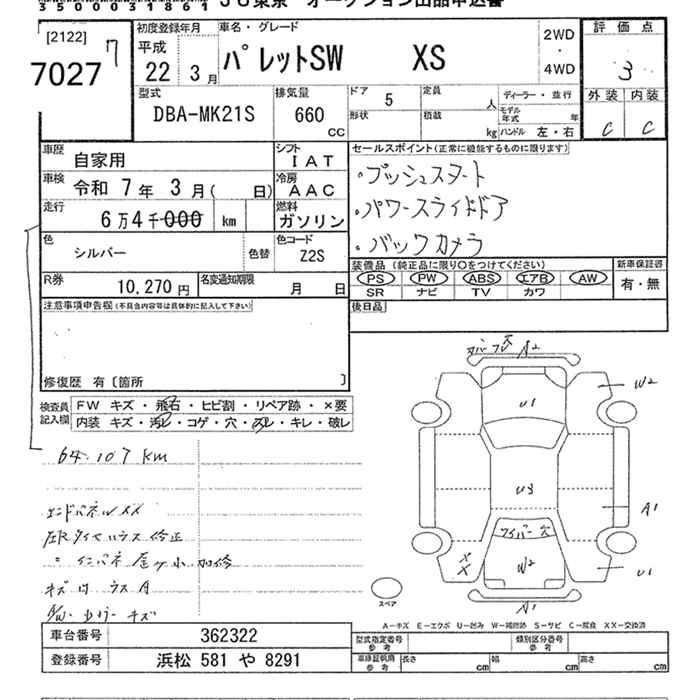 350003 1861
JU東京 オークション出品申込書
[2122]
7027
7
初度登録年月
平成
22年 3月
車名・グレード
パレットSW XS
2WD
・
4WD
評価点
3
外装 内装
C C
型式
DBA-MK21S
排気量
660
CC
ドア
5
形状
定員
人
積載
kg
ディーラー・並行
モデル年式 年
ハンドル 左・右
車歴
自家用
シフト
IAT
セールスポイント(正常に機能するものに限ります)
・プッシュスタート
・パワースライドドア
・バックカメラ
車検
令和 7年 3月( 日)
冷房
AAC
走行
6万4千000 km
燃料
ガソリン
色
シルバー
色替
色コード
Z2S
装備品(純正品に限り○をつけてください)
PS PW ABS エアB AW
SR ナビ TV カワ
新車保証書
有・無
R券
10,270円
名変通知期限
月 日
後日品
注意事項申告欄(不具合内容等は具体的に記入して下さい)
修復歴 有〔箇所 〕
検査員記入欄
FW キズ・飛石・ヒビ割・リペア跡・×要
内装 キズ・汚レ・コゲ・穴・スレ・キレ・破レ
64.107km
エンドパネルXX
修正
キズ
A2
U1
W2
U3
A1
ワイパー穴
W2
X
X
U1
A1
スペア
A-キズ E-エクボ U-凹み W-補修跡 S-サビ C-腐食 XX-交換済
車台番号
362322
登録番号
浜松 581 や 8291
型式指定番号
参考
類別区分番号
参考
車庫証明用
参考
長さ cm
幅 cm
高さ cm